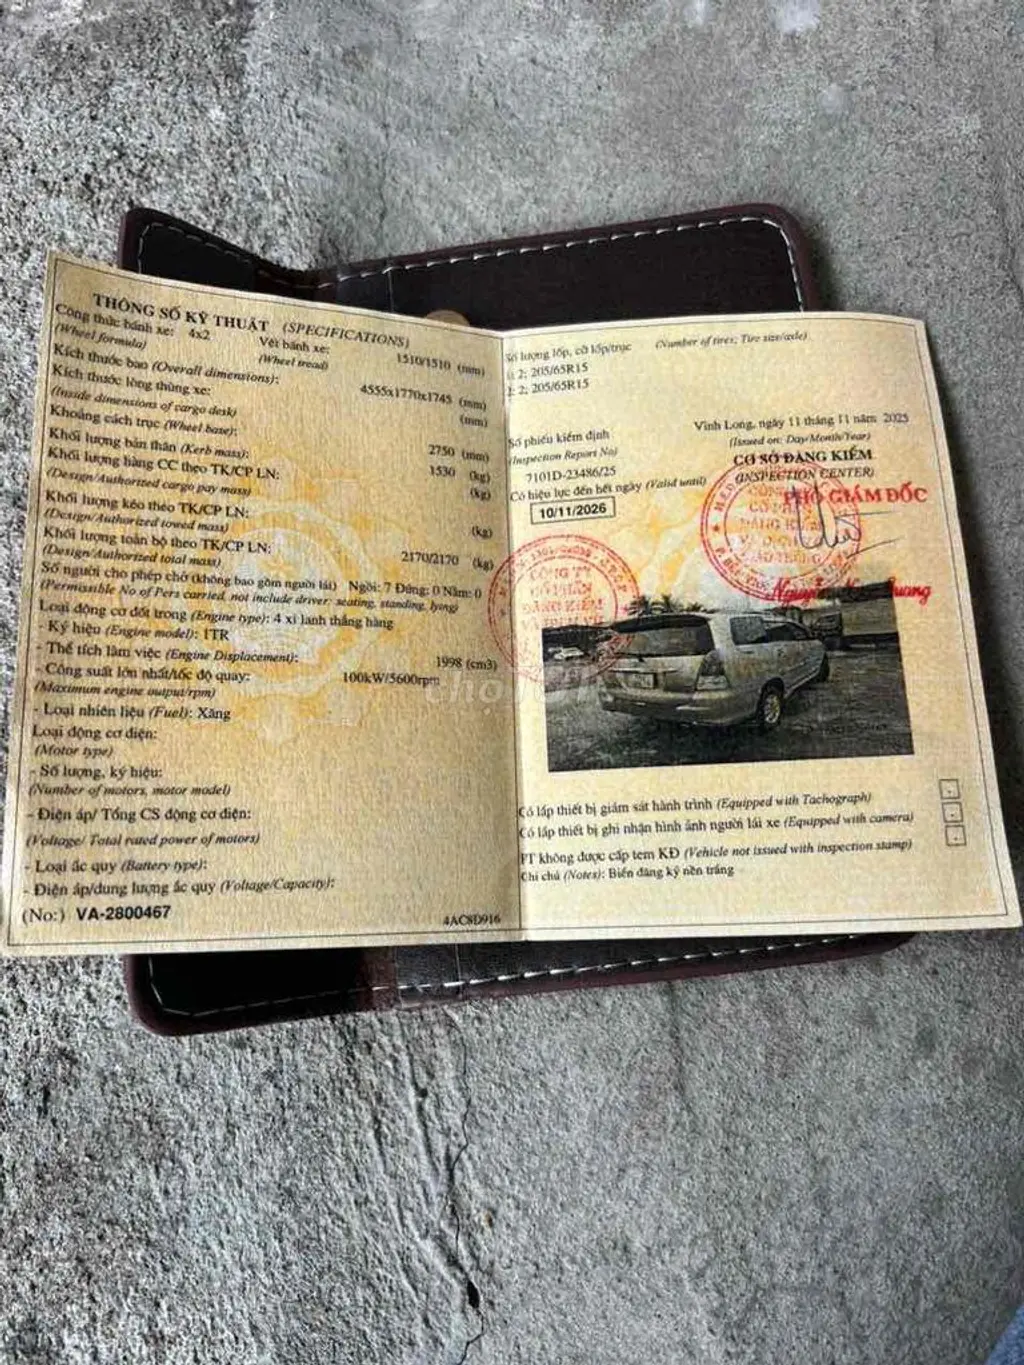 THÔNG SỐ KỸ THUẬT (SPECIFICATIONS)
Công thức bánh xe: 4x2 Vết bánh xe: 1510/1510 (mm)
(Wheel formula) (Wheel tread)
Kích thước bao (Overall dimensions): 4555x1770x1745 (mm)
Kích thước lòng thùng xe: (mm)
(Inside dimensions of cargo desk)
Khoảng cách trục (Wheel base): 2750 (mm)
Khối lượng bản thân (Kerb mass): 1530 (kg)
Khối lượng hàng CC theo TK/CP LN: (kg)
(Design/Authorized cargo pay mass)
Khối lượng kéo theo TK/CP LN: (kg)
(Design/Authorized towed mass)
Khối lượng toàn bộ theo TK/CP LN: 2170/2170 (kg)
(Design/Authorized total mass)
Số người cho phép chở (không bao gồm người lái) Ngồi: 7 Đứng: 0 Nằm: 0
(Permissible No of Pers carried, not include driver: seating, standing, lying)
Loại động cơ đốt trong (Engine type): 4 xi lanh thẳng hàng
- Ký hiệu (Engine model): 1TR
- Thể tích làm việc (Engine Displacement): 1998 (cm3)
- Công suất lớn nhất/tốc độ quay: 100kW/5600rpm
(Maximum engine output/rpm)
- Loại nhiên liệu (Fuel): Xăng
Loại động cơ điện:
(Motor type)
- Số lượng, ký hiệu:
(Number of motors, motor model)
- Điện áp/ Tổng CS động cơ điện:
(Voltage/ Total rated power of motors)
- Loại ắc quy (Battery type):
- Điện áp/dung lượng ắc quy (Voltage/Capacity):
(No:) VA-2800467 4AC8D916
Số lượng lốp, cỡ lốp/trục (Number of tires; Tire size/axle)
2: 205/65R15
2: 205/65R15
Vĩnh Long, ngày 11 tháng 11 năm 2025
(Issued on: Day/Month/Year)
Số phiếu kiểm định CƠ SỞ ĐĂNG KIỂM
(Inspection Report No) (INSPECTION CENTER)
7101D-23486/25
Có hiệu lực đến hết ngày (Valid until) PHÓ GIÁM ĐỐC
10/11/2026
CÔNG TY
CỔ PHẦN
ĐĂNG KIỂM
Có lắp thiết bị giám sát hành trình (Equipped with Tachograph)
Có lắp thiết bị ghi nhận hình ảnh người lái xe (Equipped with camera)
PT không được cấp tem KĐ (Vehicle not issued with inspection stamp)
Ghi chú (Notes): Biển đăng ký nền trắng